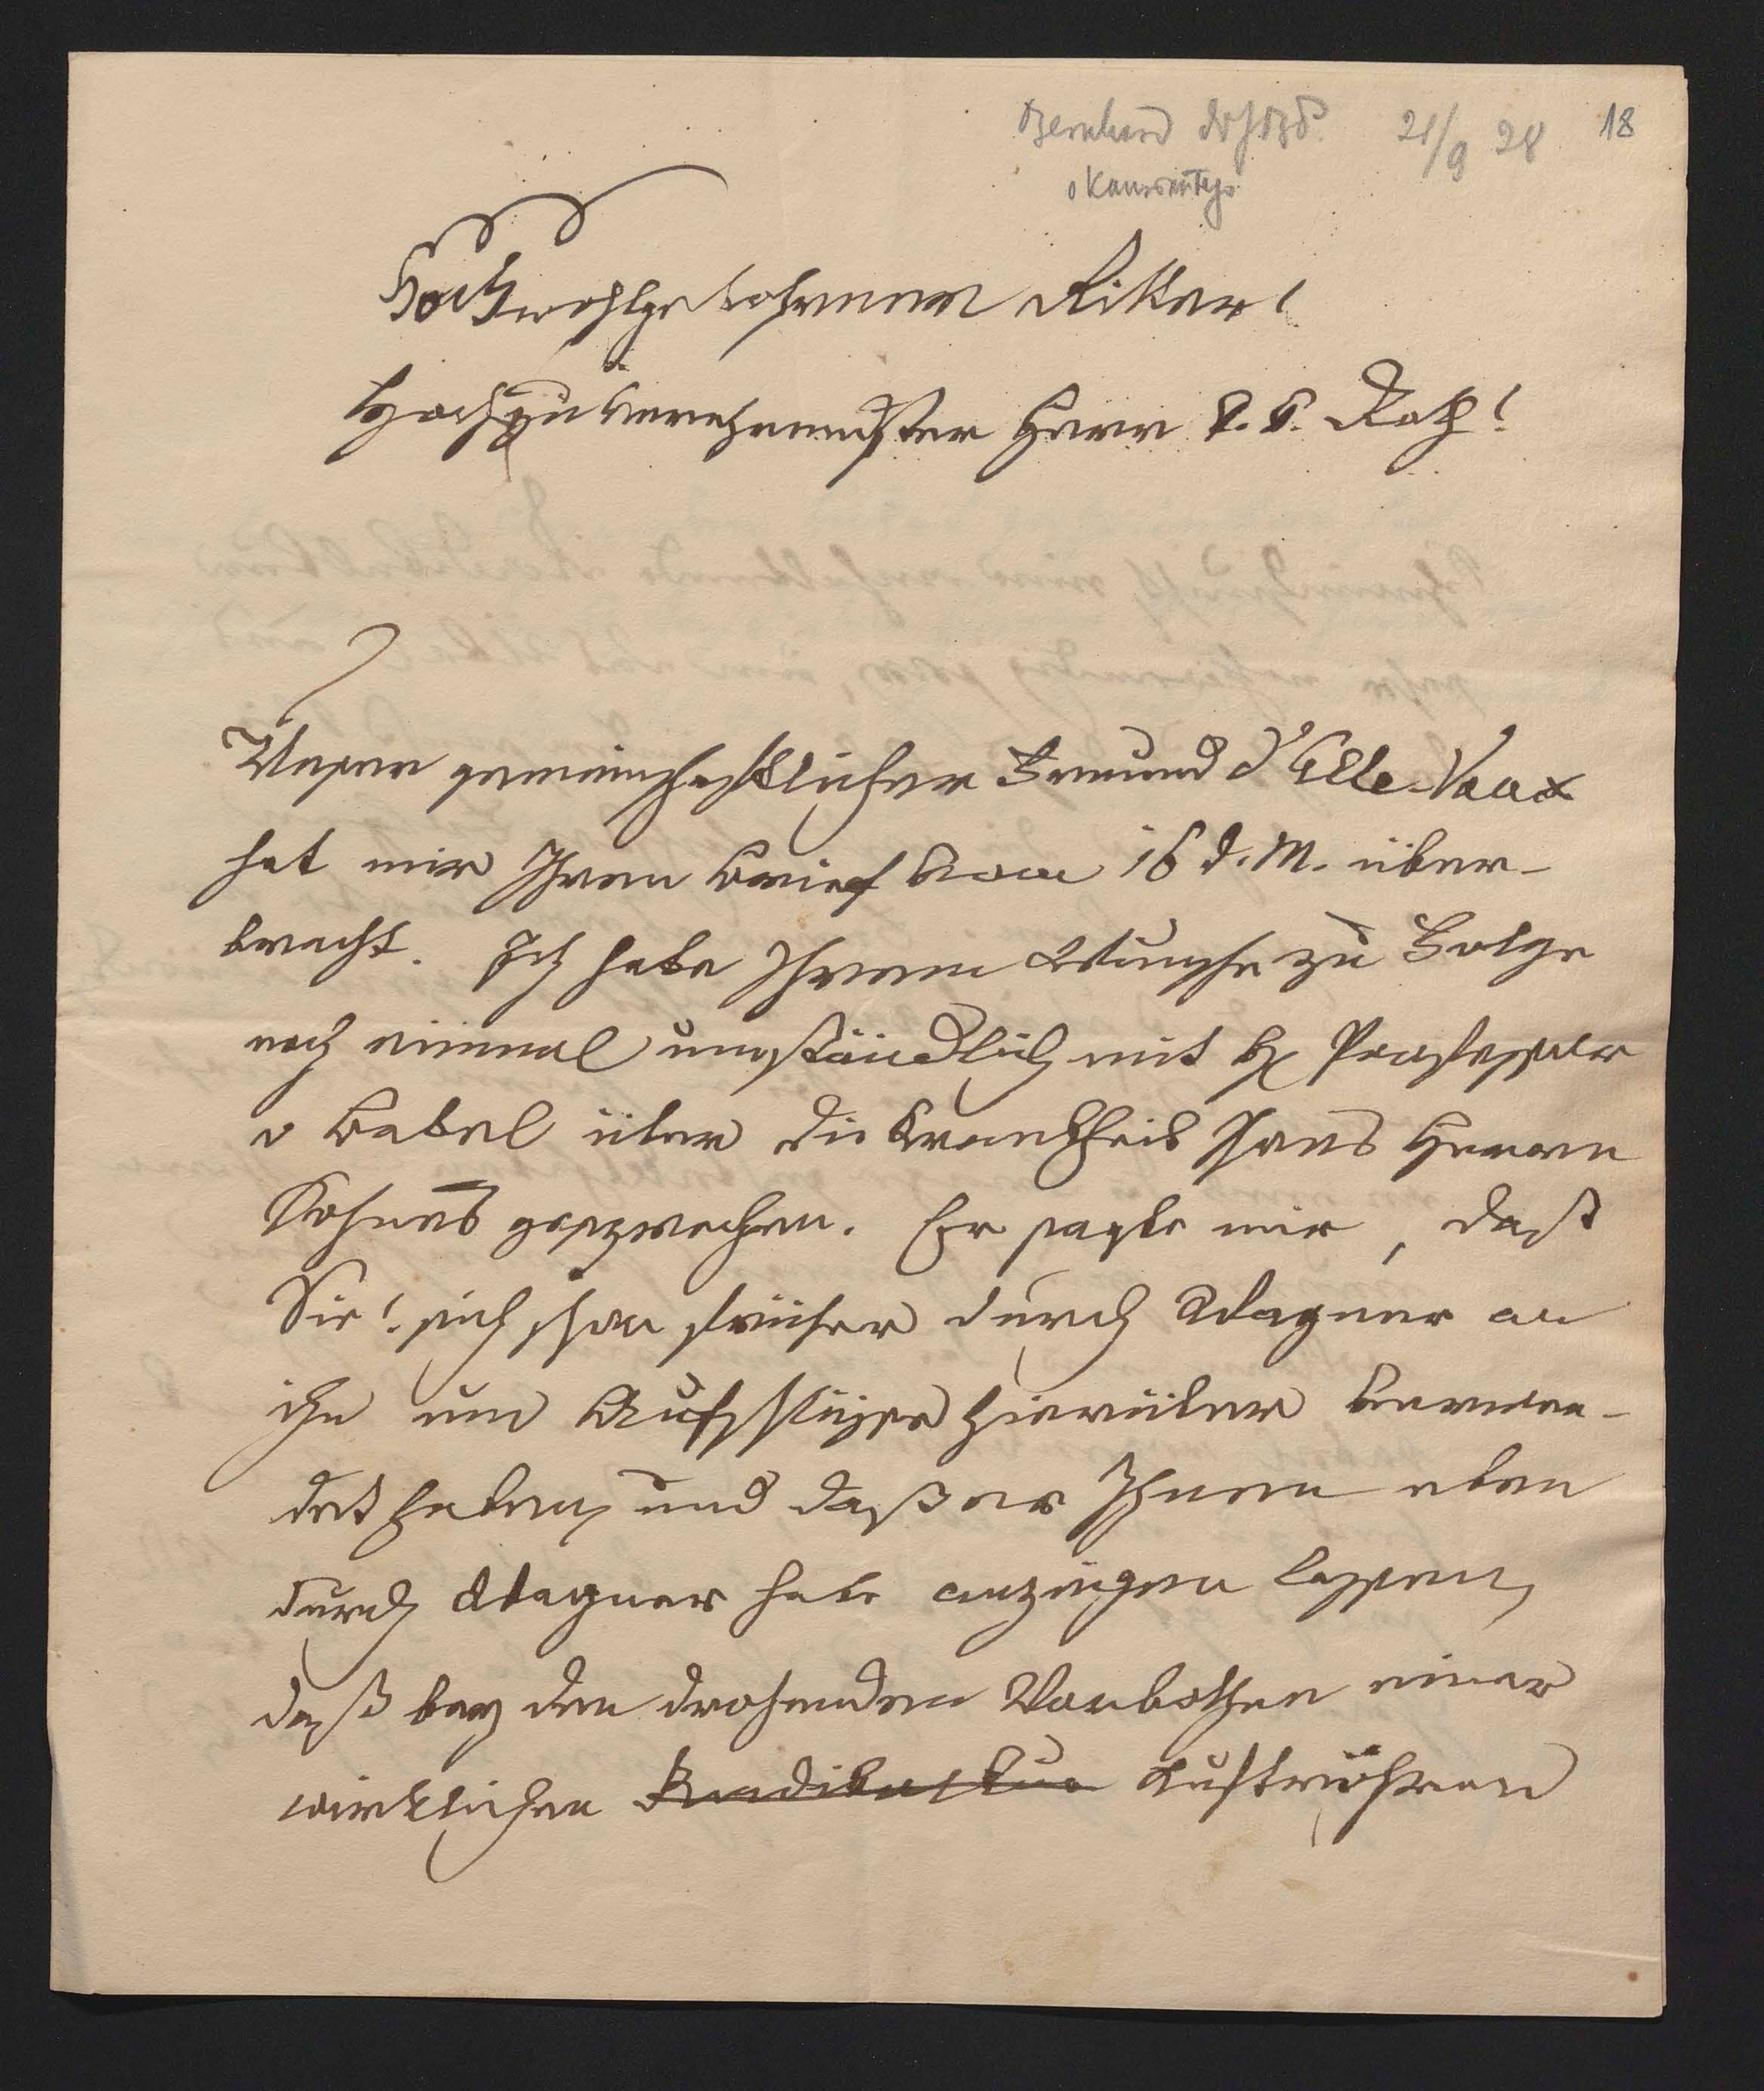 21/9 28 18
Hochwohlgebohrener Ritter!
Hochzuverehrendster Herr k. k. Rath!
Unser gemeinschaftlicher Freund d'Elle-Vaux
hat mir Ihren Brief vom 16 d. M. über-
bracht. Ich habe Ihrem Wunsche zu Folge
noch einmal umständlich mit H. Professor
v Babel über die Krankheit Ihres Herren
Sohnes gesprochen. Er sagte mir, daß
Sie! sich schon früher durch Wagner an
ihn um Aufschlüsse hierüber verwen-
det haben, und daß er Ihnen eben
durch Wagner habe anzeigen lassen,
daß bey den drohenden Vorbothen einer
wirklichen Luftröhren